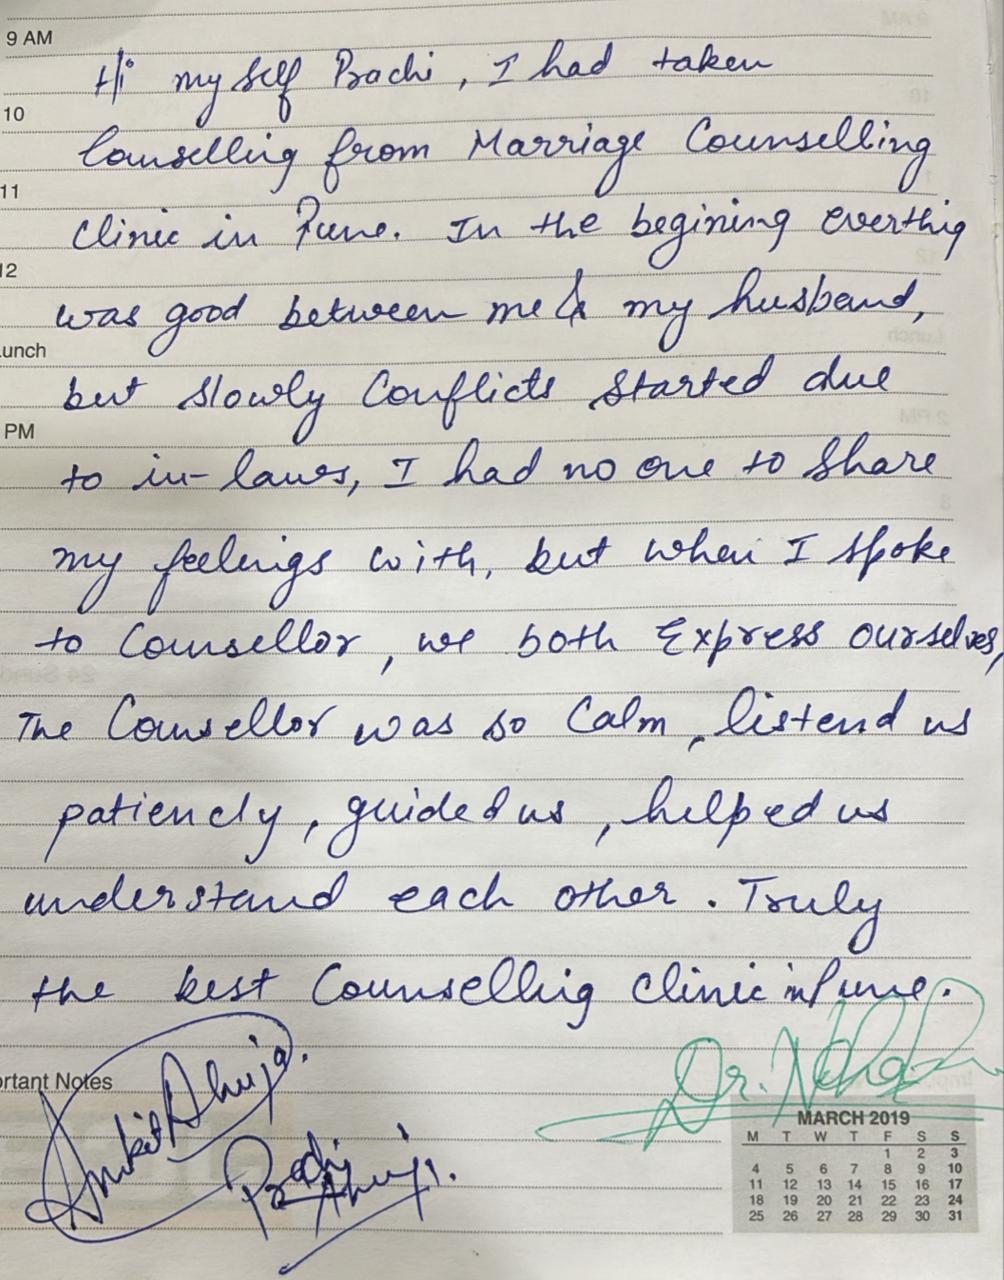 9 AM
Hi my self Prachi, I had taken
10
Counselling from Marriage Counselling
11
Clinic in Pune. In the begining everthig
12
was good between me & my husband,
unch
but slowly Conflicts started due
PM
to in-laws, I had no one to share
my feelings with, but when I spoke
to Counsellor, we both Express ourselves,
The Counsellor was so Calm, listend us
patiency, guided us, helped us
understand each other. Truly
the best Counsellig clinic in Pune.
rtant Notes
Ankit Ahuja.
Prachi Ahuja.
Dr.
MARCH 2019
M T W T F S S
1 2 3
4 5 6 7 8 9 10
11 12 13 14 15 16 17
18 19 20 21 22 23 24
25 26 27 28 29 30 31